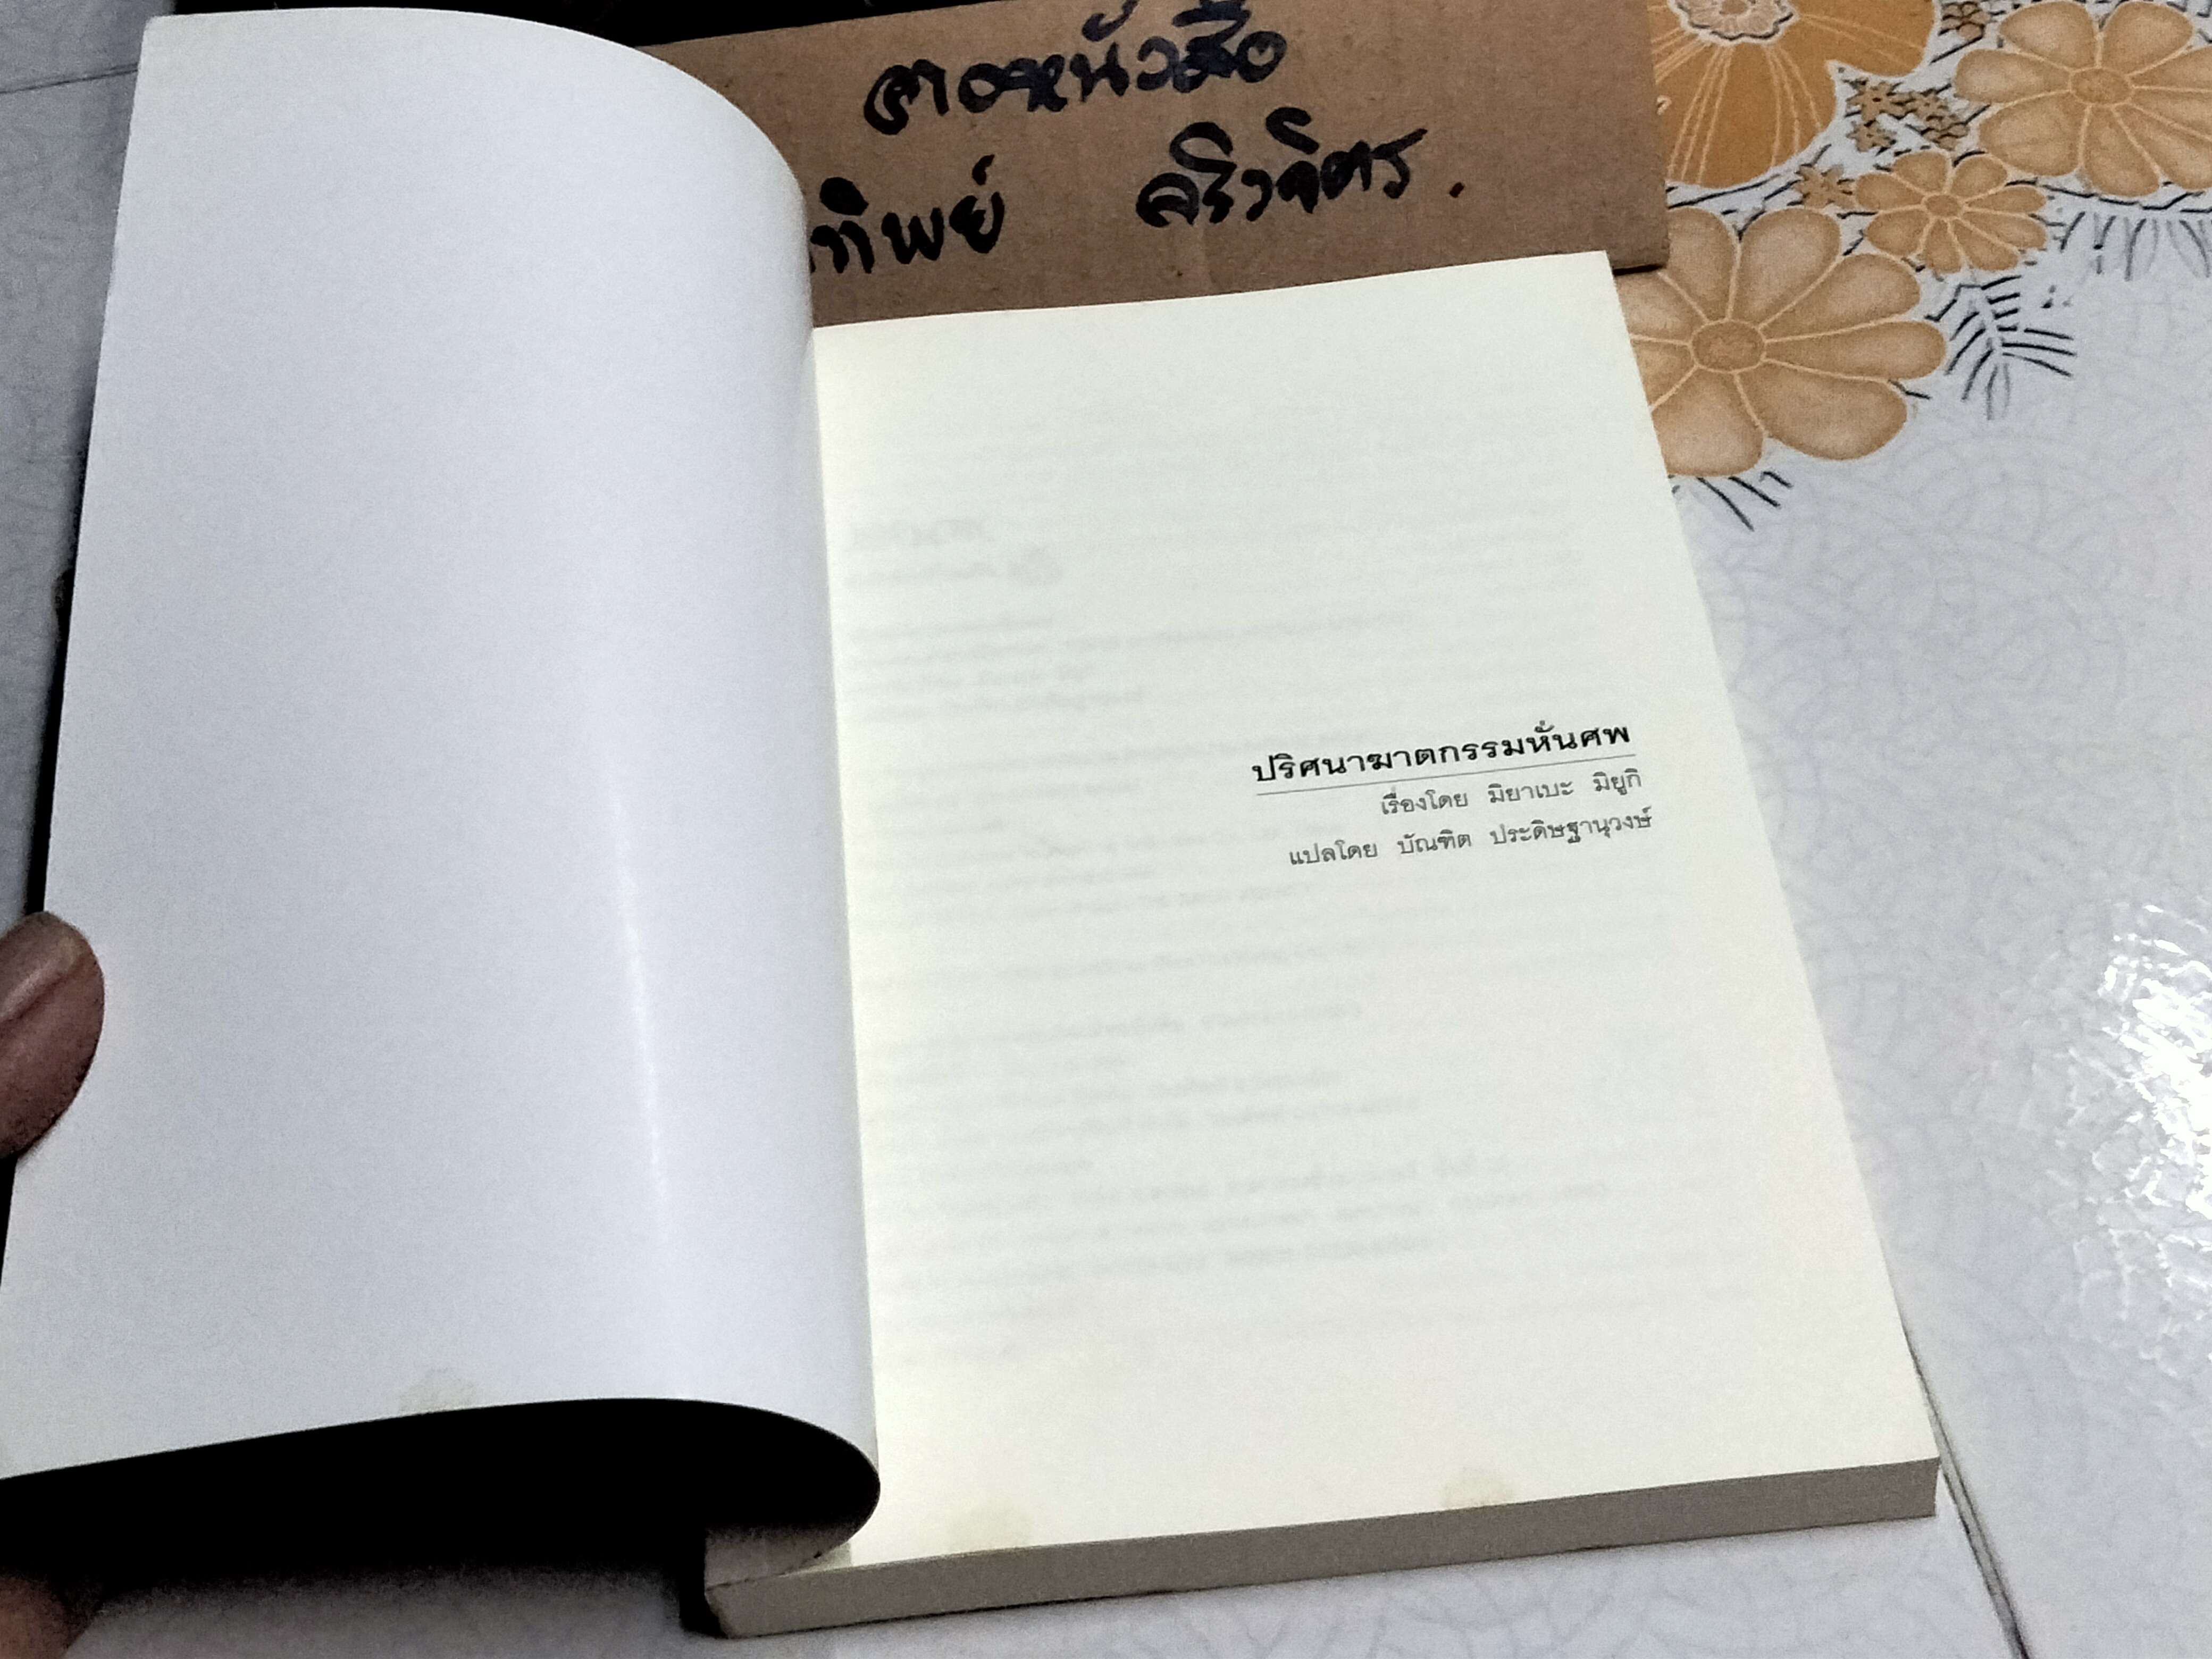 คอหนังสือ
ทิพย์ ศริวจิตร.
ปริศนาฆาตกรรมหั่นศพ
เรื่องโดย มิยาเบะ มิยูกิ
แปลโดย บัณฑิต ประดิษฐานุวงษ์